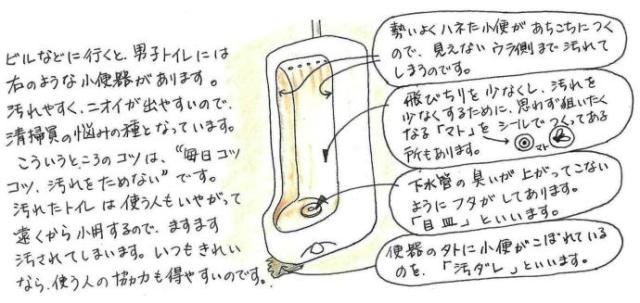 ビルなどに行くと、男子トイレには
右のような小便器があります。
汚れやすく、ニオイが出やすいので、
清掃員の悩みの種となっています。
こういうところのコツは、"毎日コツ
コツ、汚れをためない"です。
汚れたトイレは使う人もいやがって
遠くから小用するので、ますます
汚されてしまいます。いつもきれい
なら、使う人の協力も得やすいのです。
勢いよくハネた小便があちこちにつく
ので、見えないウラ側まで汚れて
しまうのです。
飛びちりを少なくし、汚れを
少なくするために、思わず狙いたく
なる「マト」をシールでつくってある
所もあります。
マト
下水管の臭いが上がってこない
ようにフタがしてあります。
「目皿」といいます。
便器の外に小便がこぼれている
のを、「汚ダレ」といいます。